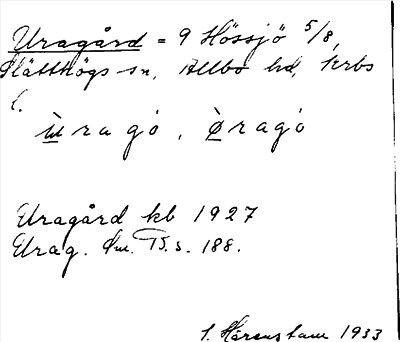 Uragård = 9 Hössjö 5/8,
Slätthögs sn, Allbo hd, Krbs
l.
ùragò, øragò
Uragård kb 1927
Urag. Öm. T5. s. 188.
1933